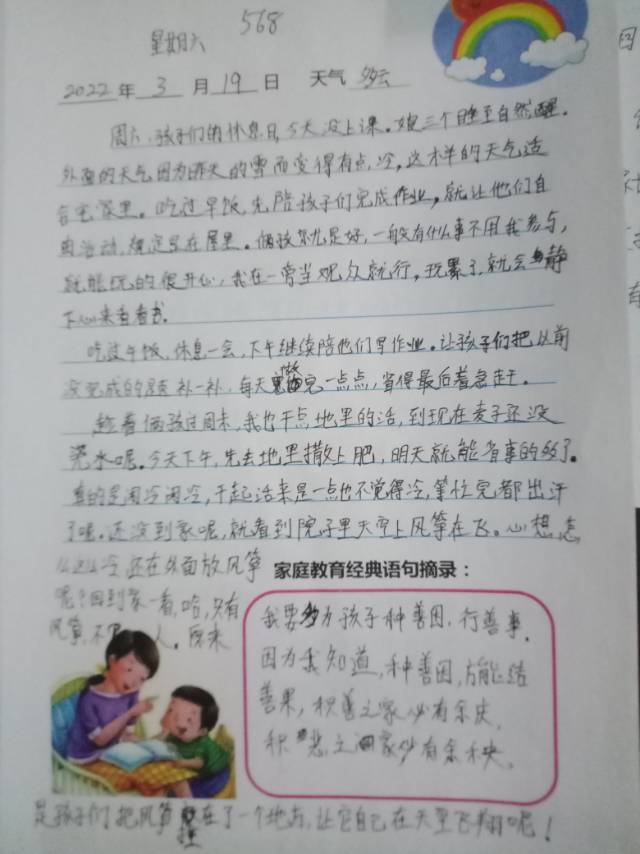 568
星期六
2022 年 3 月 19 日 天气 多云
周六,孩子们的休息日,今天没上课。娘三个睡至自然醒。
外面的天气因为昨天的雪而变得有点冷,这样的天气适
合宅家里。吃过早饭,先陪孩子们完成作业,就让他们自
由活动,规定只在屋里。俩孩就是好,一般有什么事不用我参与,
就能玩的很开心,我在一旁当观众就行,玩累了,就会静
下心来看看书。
吃过午饭,休息一会,下午继续陪他们写作业。让孩子们把以前
没完成的题补一补,每天做完一点点,省得最后着急赶。
趁着俩孩过周末,我也干点地里的活,到现在麦子还没
浇水呢。今天下午,先去地里撒上肥,明天就能省事的多了。
真的是闲冷闲冷,干起活来是一点也不觉得冷,等忙完都出汗
了呢。还没到家呢,就看到院子里天空上风筝在飞。心想怎
么这么冷还在外面放风筝
呢?回到家一看,哈,只有
风筝,不见人。原来
家庭教育经典语句摘录:
我要多为孩子种善因,行善事。
因为我知道,种善因,方能结
善果,积善之家必有余庆,
积恶之家必有余殃。
是孩子们把风筝拴在了一个地方,让它自己在天空飞翔呢!